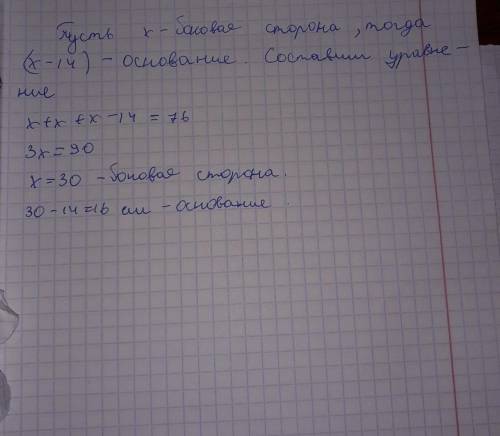 Пусть х - боковая сторона, тогда
(х-14) - основание. Составим уравне-
ние
х+х+х-14=76
3х=90
х=30 - боковая сторона.
30-14=16 см - основание.